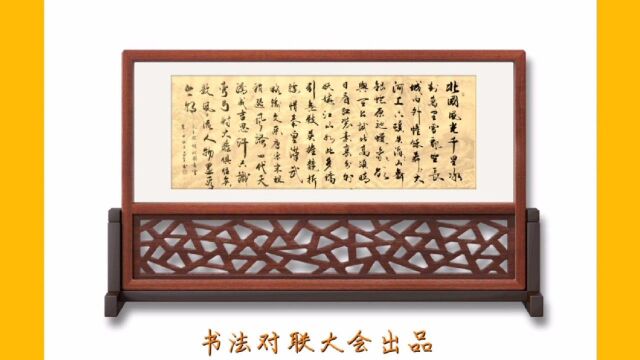 北國風光千里冰
封萬里雪飄望長
城內外惟餘莽莽大
河上下頓失滔滔山舞
銀蛇原馳蠟象欲
與天公試比高須晴
日看紅裝素裹分外
妖嬈江山如此多嬌
引無數英雄競折
腰惜秦皇漢武
略輸文采唐宗宋祖
稍遜風騷一代天
驕成吉思汗只識
彎弓射大雕俱往矣
數風流人物還看
今朝
书法对联大会出品